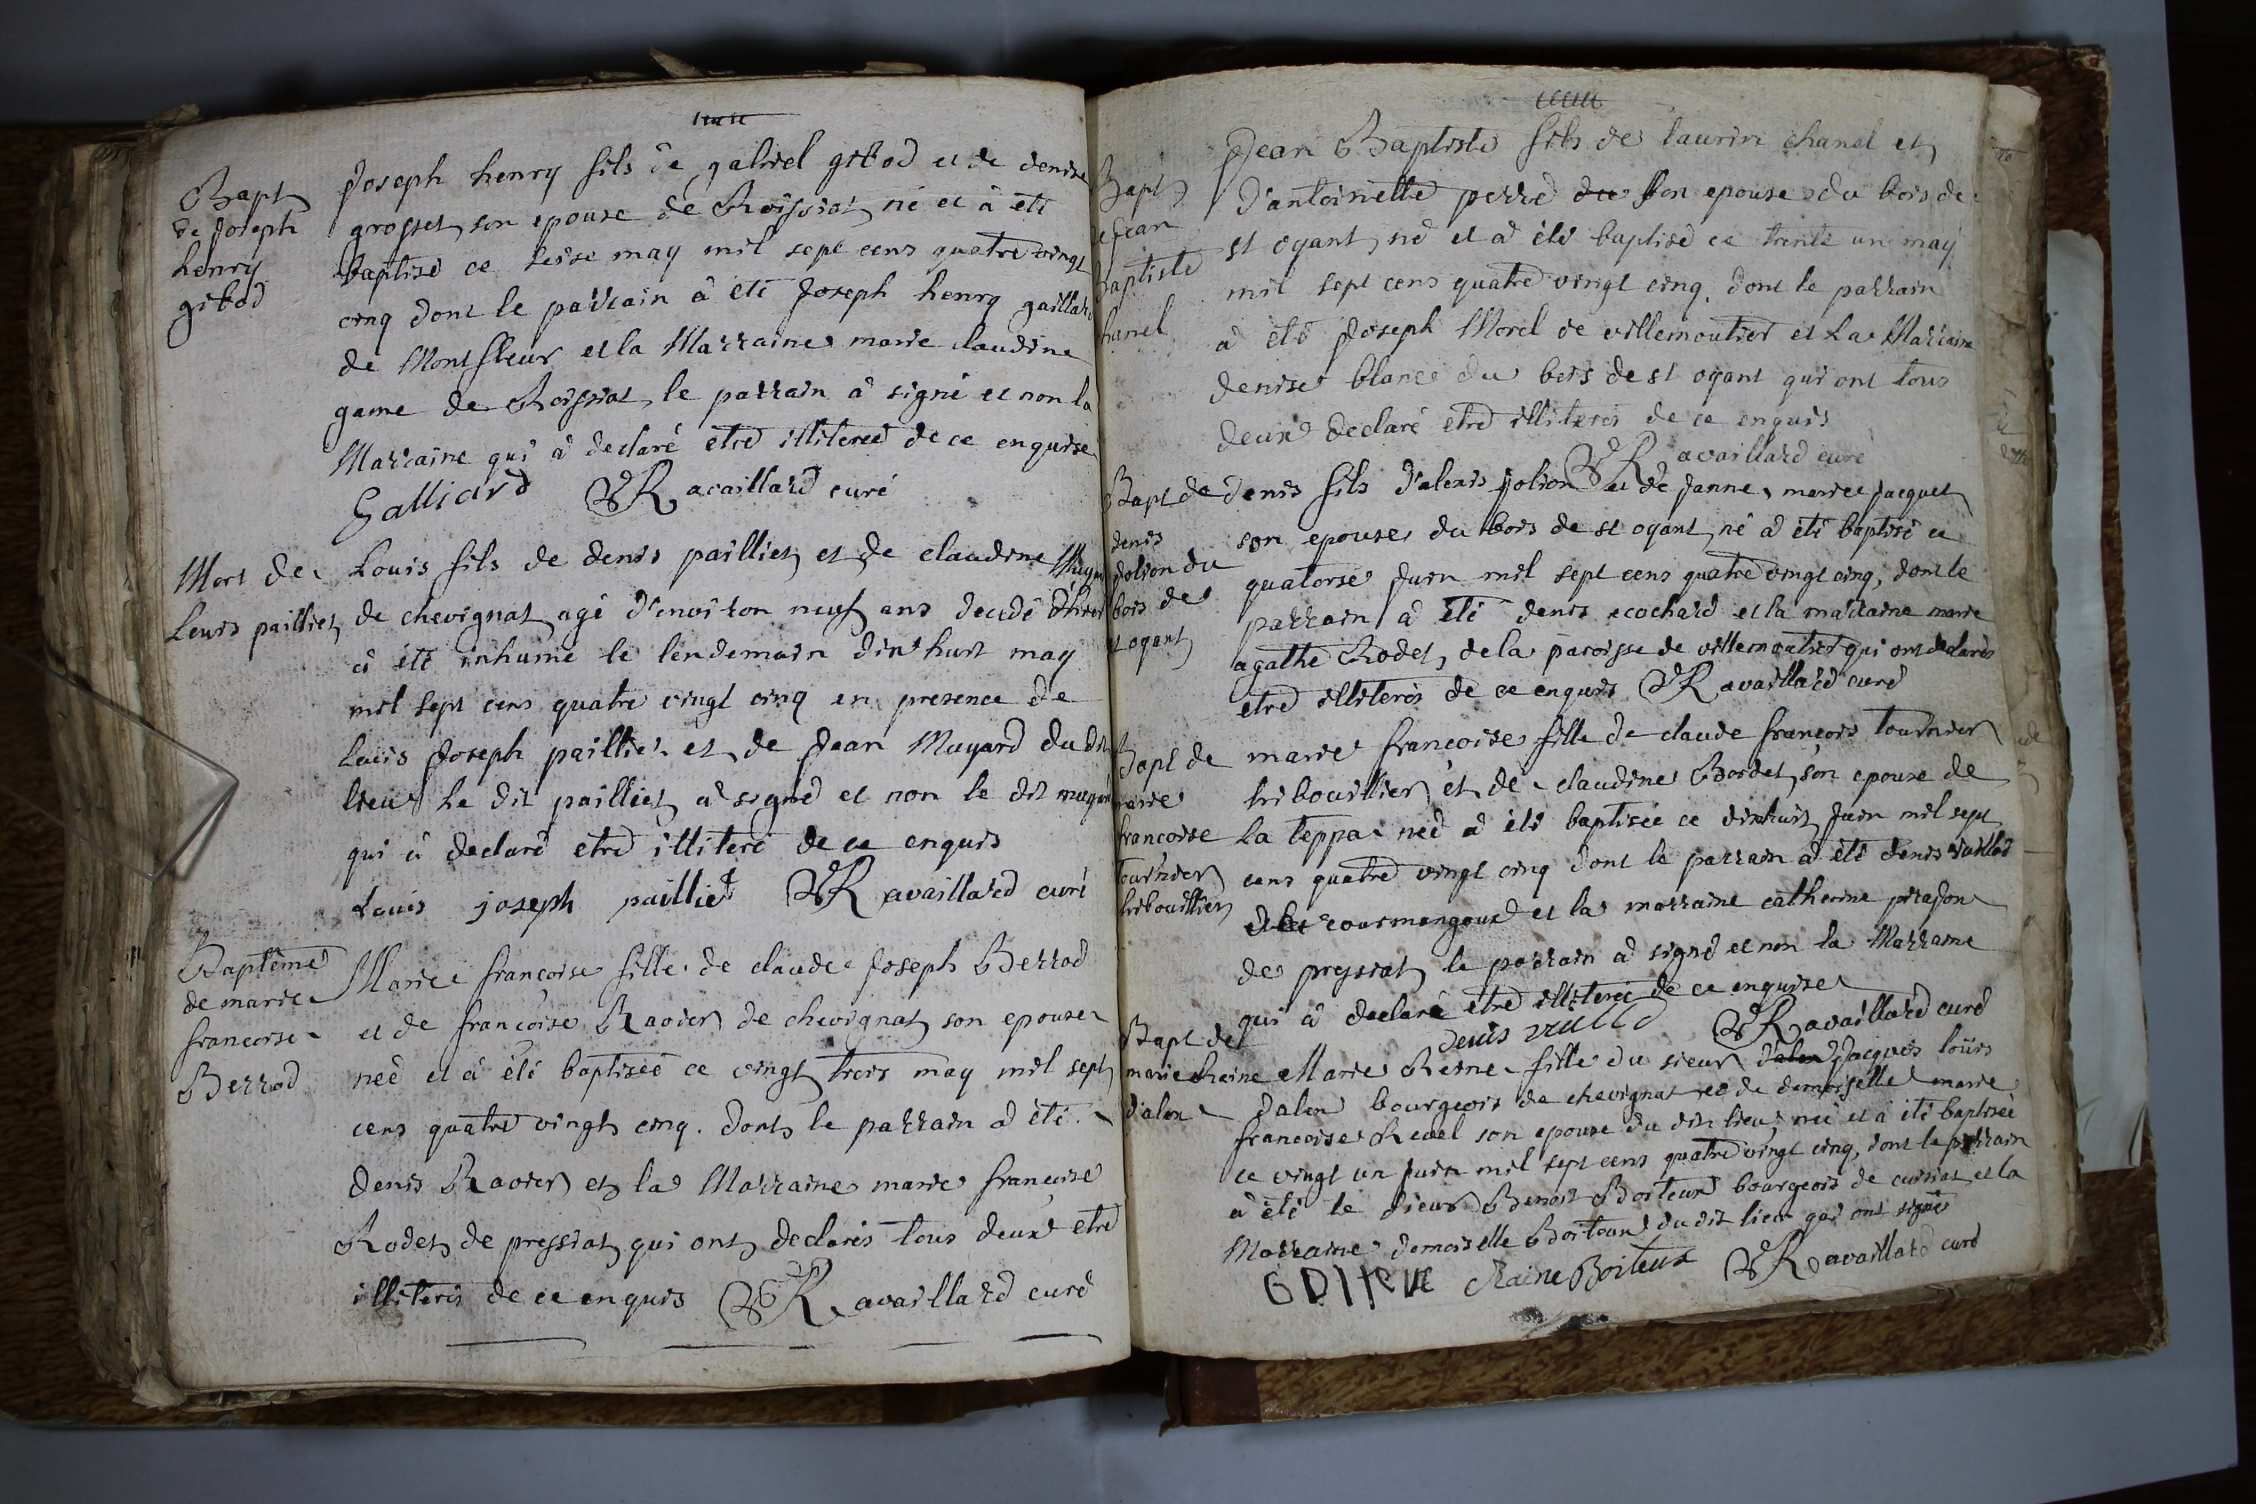 Bapt
de Joseph
henry
gibod
Joseph henry fils de gabriel gibod et de denise
grosset son epouse de Roissiat né et â eté
baptisé ce seise may mil sept cens quatre vingt
cinq dont le parrain â eté Joseph henry gaillard
de Montfleur et la Marraine marie claudine
game de Roissiat, le parrain â signé et non la
Marraine qui â declaré etre illiterée de ce enquise
Galliard Ravaillard curé
Mort de
Louis paillet
Louis fils de denis pailliet et de claudine
de chevignat agé d'environ neuf ans decedé d'hier
â été inhumé le lendemain dixhuit may
mil sept cens quatre vingt cinq en presence de
Louis Joseph pailliet et de Jean Muyard du dit
lieu le dit pailliet â signé et non le dit
qui â declaré etre illiteré de ce enquis
Louis joseph pailliet Ravaillard curé
Baptême
de marie
francoise
Berrod
Marie françoise fille de claude Joseph Berrod
et de françoise Ravier de chevignat son epouse
née et â été baptisée ce vingt trois may mil sept
cens quatre vingt cinq. dont le parrain â été
denis Ravier et la Marraine marie françoise
Rodet de pressiat qui ont declarés tous deux etre
illiterés de ce enquis Ravaillard curé
Bapt
de Jean
baptiste
chanel
Jean Baptiste fils de laurin chanel et
d'antoinette perre son epouse du bois de
st oyant né et â été baptisé ce trente un may
mil sept cens quatre vingt cinq, dont le parrain
â été Joseph Morel de villemoutier et La Marraine
denise blanc du bois de st oyant qui ont tous
deux declaré etre illiterés de ce enquis
Ravaillard curé
Bapt de
denis
Jolion du
bois de
st oyant
denis fils d'alexis Jolion et de Janne marie Jacquet
son epouse du bois de st oyant né â été baptisé ce
quatorse Juin mil sept cens quatre vingt cinq, dont le
parrain â été denis ecochard et la marraine marie
agathe Rodet de la paroisse de villemoutier qui ont declarés
etre illiterés de ce enquis Ravaillard curé
Bapt de
marie
francoise
tournier
tribouillier
marie françoise fille de claude françois tournier
tribouillier et de claudine Bordet son epouse de
La teppa née â été baptisée ce dixhuit Juin mil sept
cens quatre vingt cinq dont le parrain â été denis vuillod
de courmangoux et la marraine catherine
de pressiat le parrain â signé et non la Marraine
qui â declaré etre illiterée de ce enquise
denis vuillod Ravaillard curé
Bapt de
marie Reine
dalen
Marie Reine fille du sieur Jacques loüis
dalen bourgeois de chevignat et de demoiselle marie
francoise Revel son epouse du dit lieu née et â été baptisée
ce vingt un Juin mil sept cens quatre vingt cinq, dont le parrain
â été le sieur Benoit Boiteux bourgeois de cuisiat et la
Marraine demoiselle Boiteux du dit lieu qui ont signés
Raine Boiteux Ravaillard curé